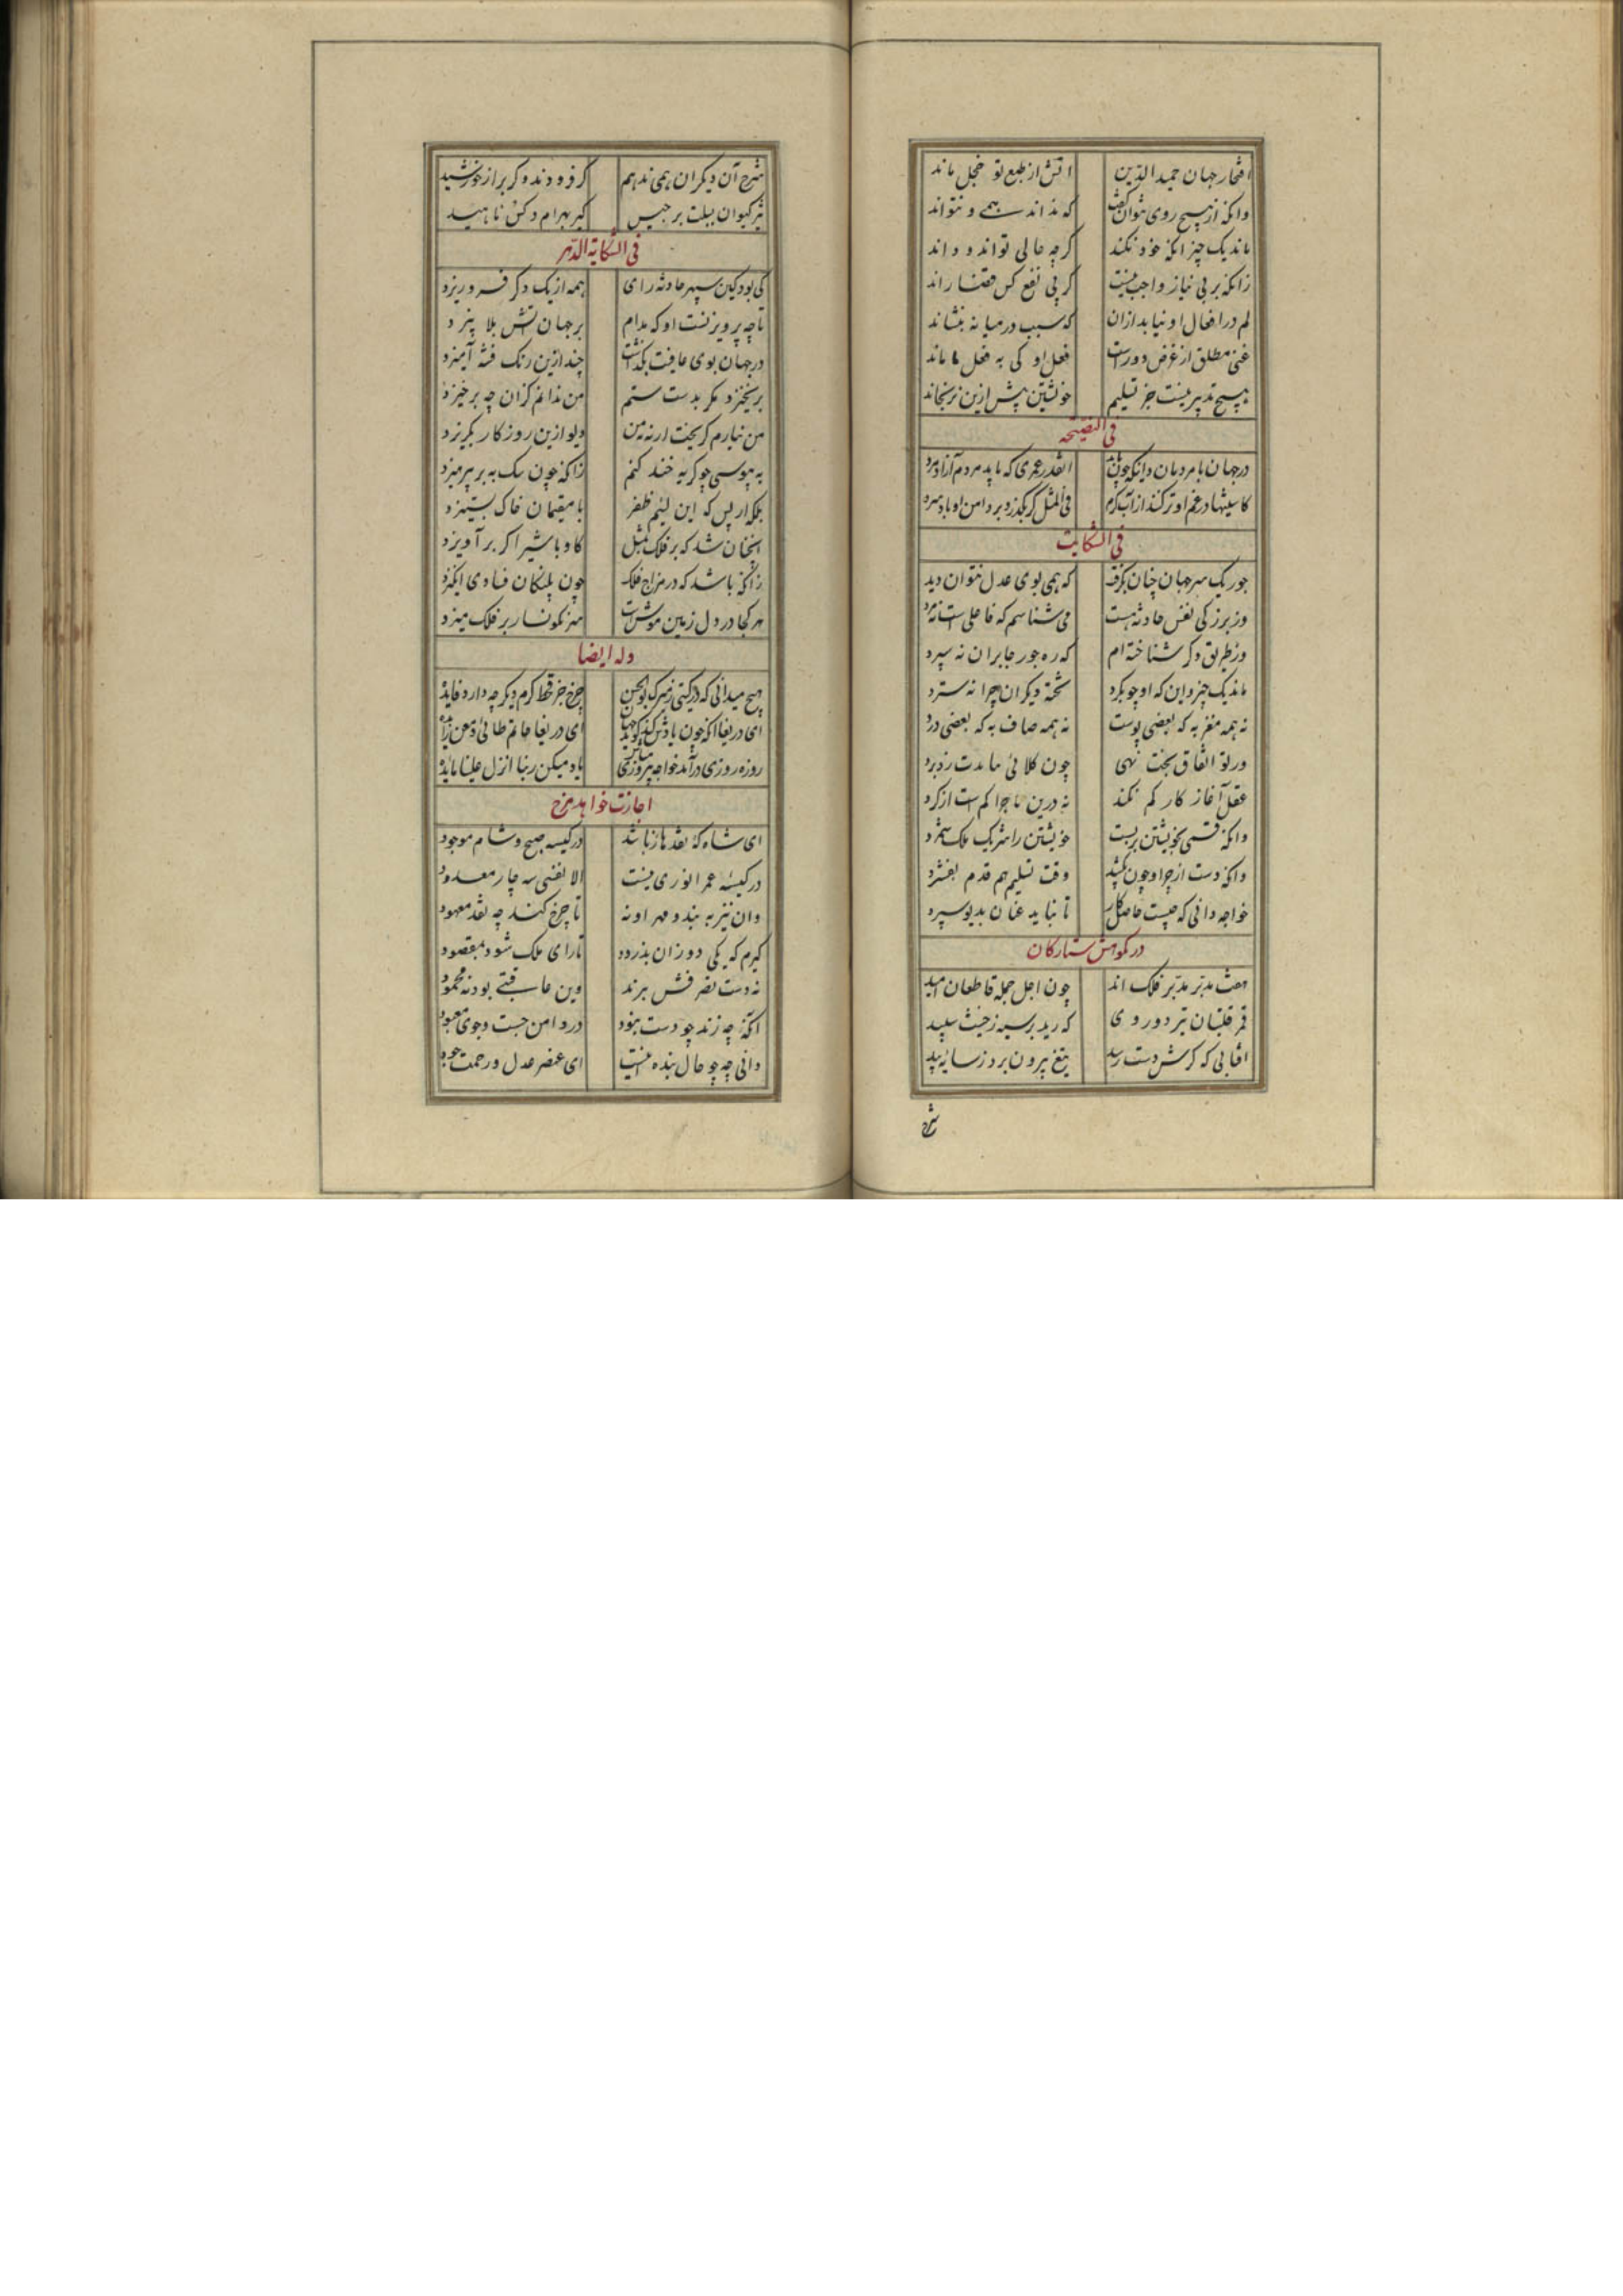 افتخار جهان حمید الدین اتش از طبع تو خجل ماند
وانکه از هیچ روی نتوان گفت که نداند همی و نتواند
ماند یک چیز انکه خود نکند کر چه حالی تواند و داند
زانکه بر بی نیاز واجب نیست کز پی نفع کس قضا راند
لم در افعال او نیاید ازان که سبب در میانه بنشاند
غنی مطلق از غرض دورست فعل او کی به فعل ما ماند
هیچ تدبیر نیست جز تسلیم خویشتن بیش ازین نرنجاند
فی النصیحه
در جهان با مردمان دانیکه چون باید انقدر عمری که یابد مردم آزاد مرد
کاستینها در غم او تر کنند از آب گرم فی المثل گر بگذرد بر دامن او باد سرد
فی الشکایت
جور یکسر جهان چنان بگرفت که همی بوی عدل نتوان دید
وز بزرگی نفس حادثه هست می شناسم که فاعلی است نه مرد
وز طریق دکر شناخته ام که ره جور جابران نه سپرد
ماند یک چیز و این که او چو بکرد تخته دیکران چرا نه سترد
نه همه مغز به که بعضی پوست نه همه صاف به که بعضی درد
ور تو اتفاق بخت نهی چون کلابی ماندت زد برد
عقل آغاز کار کم نکند نه درین ماجرا کم است از کرد
وانکه قسمی بخویشتن بربست خویشتن را شریک ملک شمرد
وانکه دست از چرا و چون بکشید وقت تسلیم هم قدم بفشرد
خواجه دانی که چیست حاصل کار تا نباید عنان بدیو سپرد
در نکوهش ستارکان
هفت مدبر مدبر فلک اند چون اجل جمله قاطعان امید
قمر قلتبان تیز دو روی که رید بر سیه ز خبث سپید
افتابی که کرش دست رسد تیغ بیرون برد ز سایه بید
شرح
شرح آن دیکران همی ندهم کر فرودند و کر براز خورشید
تیر کیوان ببلت برجیس کیر بهرام و کس ناهید
فی الشکایة الدهر
کی بود کین سپهر حادثه زای همه از یک دکر فرو ریزد
تا چه پرویزنست او که مدام بر جهان اتش بلا بیزد
در جهان بوی عافیت بگذاشت چند ازین رنک فتنه آمیزد
برنخیزد مکر بدست ستم من ندانم کزان چه برخیزد
من نیارم گریخت ار نه من دیو ازین روزکار بکریزد
به هوسی چو کریه خنده کنم زانکه چون سک به بر پرهیزد
بلکه ار پس که این لئیم ظفر با مقیمان خاک بستیزد
انچنان شد که بر فلک بمثل کاو با شیر اکر برآویزد
زانکه باشد که در مزاج فلک چون پلنکان فسادی انکیزد
هر کجا در دل زمین موشیست سر نکونسار بر فلک میزد
وله ایضا
هیچ میدانی که در کیتی ز مرک بوالحسن چرخ جز قحط کرم دیکر چه دارد فایده
ای دریغا انکه چون یادش کند کوید جهان ای دریغا حاتم طائی و معن زایده
روزه روزی درآمد خواجه پیروزی یاد میکن ربنا انزل علینا مایده
اجازت خواهد بزح
ای شاه که نقدها زباشد در کیسه صبح و شام موجود
در کیسه عمر انوری نیست الا نفسی سه چار معدود
وان نیز به بند و مهر او نه تا چرخ کند چه نقد معهود
کیرم که یکی دو زان بدزدد تا رای ملک شود بمقصود
نه دست تصرفش ببرند وین عاقبتی بود نه محمود
انکه چه زند چو دست نبود در دامن جست و جوی معبود
دانی چه چو حال بنده اینست ای عنصر عدل و رحمت جود